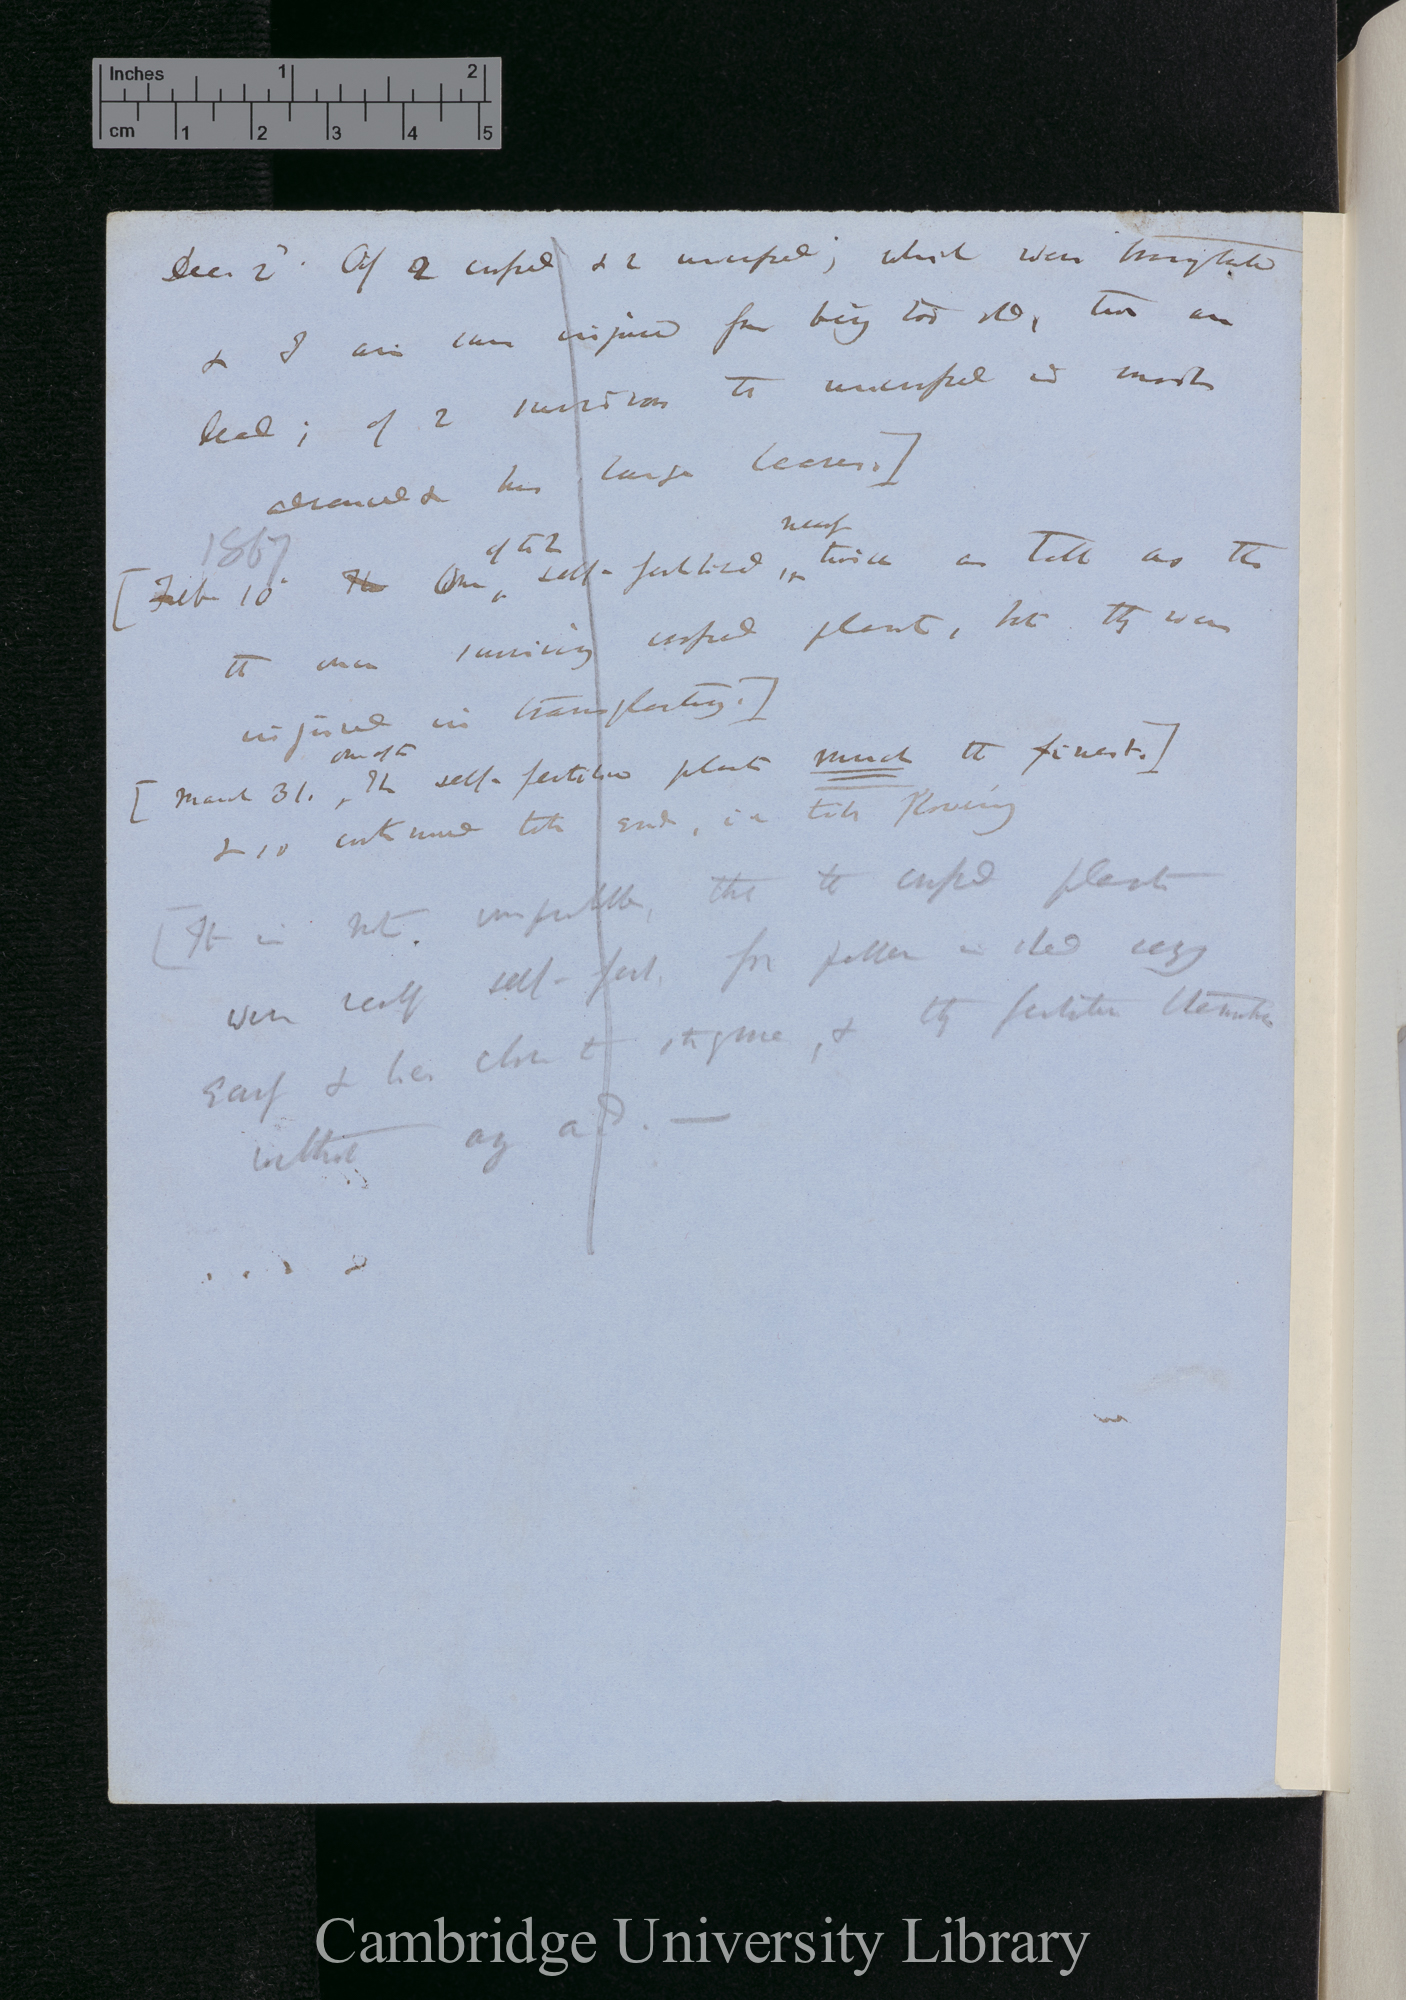 Inches 1 2
cm 1 2 3 4 5
Dec. 2d. Of 2 crossed & 2 uncrossed; which were transplanted
& I am sure injured from being too old, two are
dead; of 2 survivors the uncrossed is most
advanced & has large leaves.]
1867
of the 2 nearly
[Feb 10th The One self-fertilised is twice as tall as the
the one surviving crossed plant, but they were
injured in transplanting.]
one of the
[March 31. The self-fertilised plants much the finest.]
& so continued to the end, ie till flowering
[It is not improbable, that the crossed plants
were really self-fert. for pollen is shed very
early & lies close to stigma, & they fertilise themselves
without any aid. —
Cambridge University Library